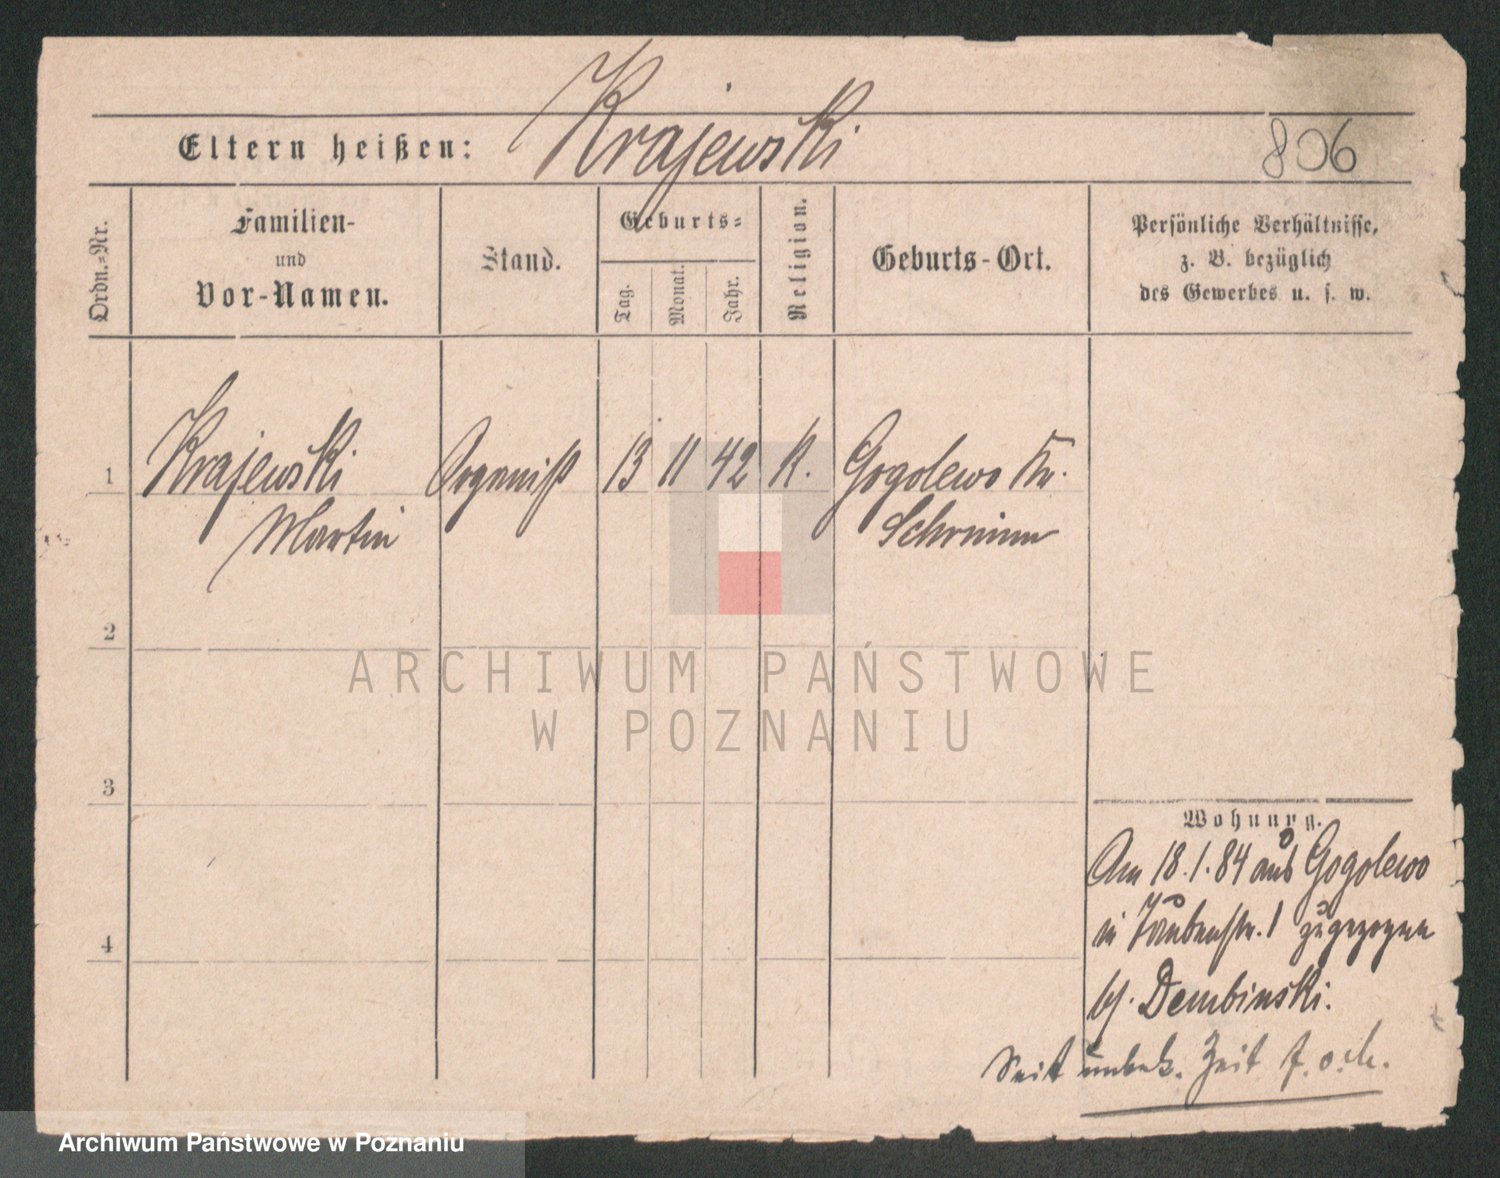 Krajewski
Eltern heißen:
806
Ordn.-Nr.
Familien-
und
Vor-Namen.
Stand.
Geburts-
Tag.
Monat.
Jahr.
Religion.
Geburts-Ort.
Persönliche Verhältnisse,
z. B. bezüglich
des Gewerbes u. s. w.
1 Krajewski Organist 13 11 42 K. Gogolewo Kr.
Martin Schrimm
2
ARCHIWUM PAŃSTWOWE
W POZNANIU
3
Wohnung.
Am 18.1.84 aus Gogolewo
in Taubenstr. 1 zugezogen
4
b/. Dembinski.
Seit unbek. Zeit f.o.h.
Archiwum Państwowe w Poznaniu